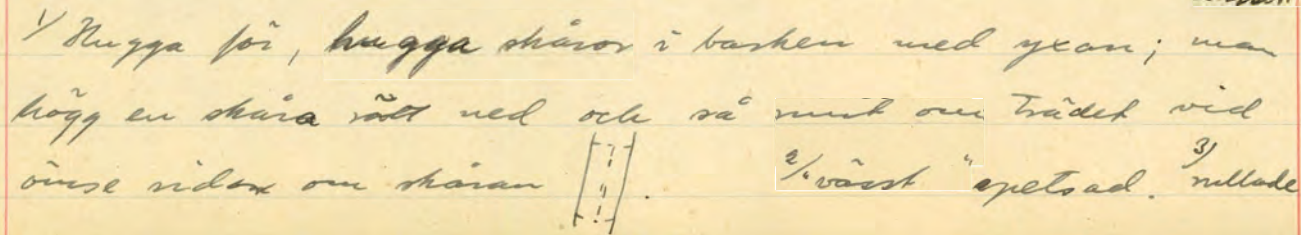 1/ Hugga för, hugga skåror i barken med yxan; man
högg en skåra rätt ned och så runt om trädet vid
ömse sidor om skåran . 2/ "vässt" spetsad. 3/ rullade